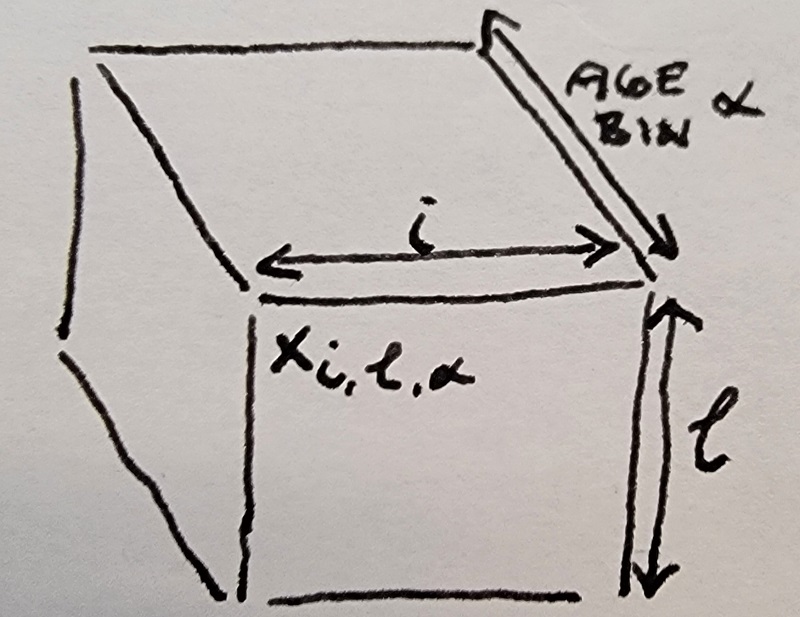 AGE
BIN α
i
X i, l, α
l